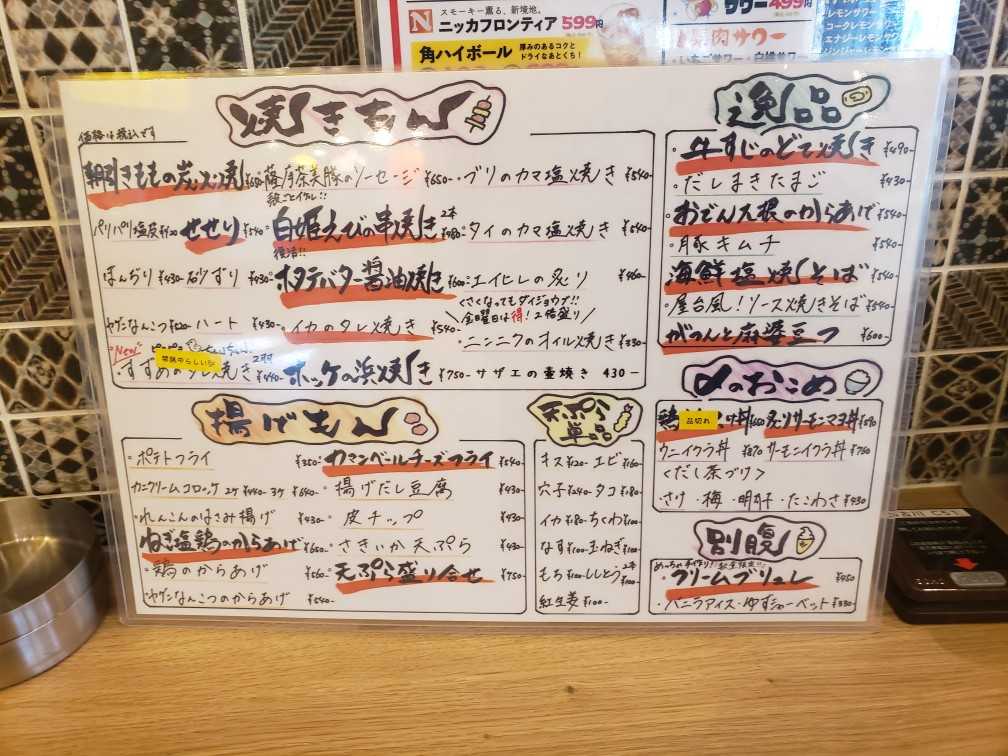 スモーキー薫る、新境地。
ニッカフロンティア 599円
角ハイボール
厚みのあるコクと
ドライなあとくち!
サワー 499円
果肉サワー
レモンサワー
コークレモンサワー
エナジーレモンサワー
ジンジャーレモンサワー
価格は税込です
焼きもん
朝引きももの炭火焼き ¥650-
薩摩奈美豚のソーセージ ¥650-
・ブリのカマ塩焼き ¥540-
パリパリ塩皮
せせり ¥540-
殻ごとイケル!!
白姫えびの串焼き 2本 ¥480-
・タイのカマ塩焼き ¥540-
ぼんぢり ¥430-
砂ずり ¥430-
復活!!
ホタテバター醤油焼き ¥600-
・エイヒレの炙り ¥460-
ヤゲンなんこつ ¥520-
ハート ¥430-
・イカのタレ焼き ¥540-
くさくなってもダイジョウブ!!
金曜日は得!2倍盛り
・ニンニクのオイル焼き ¥330-
New
すずめのタレ焼き 2羽 ¥440-
禁猟中らしい💦
ホッケの浜焼き ¥750-
サザエの壷焼き 430-
揚げもん
・ポテトフライ ¥350-
カニクリームコロッケ 2ケ ¥440- 3ケ ¥640-
・れんこんのはさみ揚げ ¥430-
ねぎ塩鶏のからあげ ¥650-
・鶏のからあげ ¥560-
ヤゲンなんこつのからあげ ¥540-
カマンベールチーズフライ ¥540-
・揚げだし豆腐 ¥430-
・皮チップ ¥430-
・さきいか天ぷら ¥430-
天ぷら盛り合せ ¥750-
天ぷら
単品
キス ¥120- エビ ¥160-
穴子 ¥240- タコ ¥180-
イカ ¥180- ちくわ ¥100-
なす ¥100- 玉ねぎ ¥100-
もち ¥100- ししとう 2本 ¥100-
紅生姜 ¥100-
逸品
・牛すじのどて焼き ¥490-
・だしまきたまご ¥430-
おでん大根のからあげ ¥540-
・豚キムチ ¥540-
海鮮塩焼きそば ¥540-
・屋台風!ソース焼きそば ¥540-
がつんと麻婆豆フ ¥600-
〆のおこめ
品切れ
炙りサーモンマヨ丼 ¥590
ウニイクラ丼 ¥870
サーモンイクラ丼 ¥760
<だし茶づけ>
・さけ・梅・明太子・たこわさ ¥430
別腹
めっちゃ手作り!
・クリームブリュレ ¥450
・バニラアイス・ゆずシャーベット ¥330